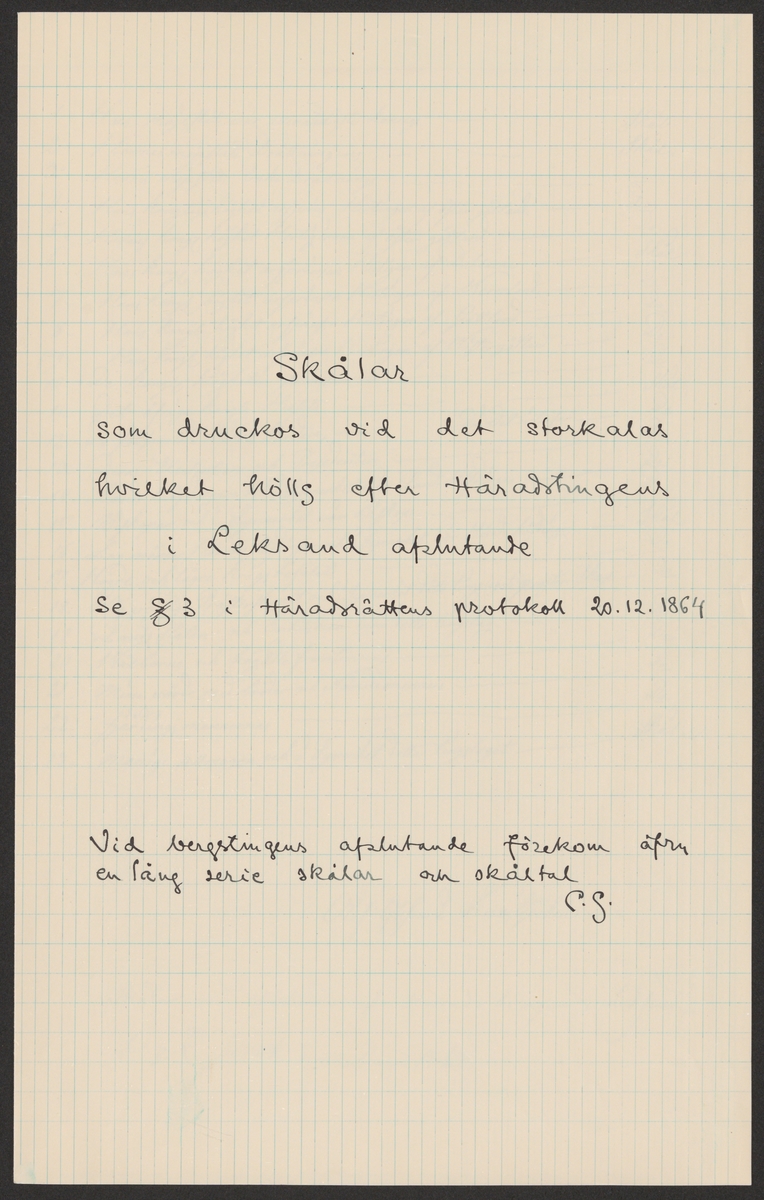 Skålar
som druckos vid det storkalas
hvilket hölls efter Häradstingens
i Leksand afslutande
Se § 3 i Häradsrättens protokoll 20.12.1864
Vid bergstingens afslutande förekom äfven
en lång serie skålar och skåltal